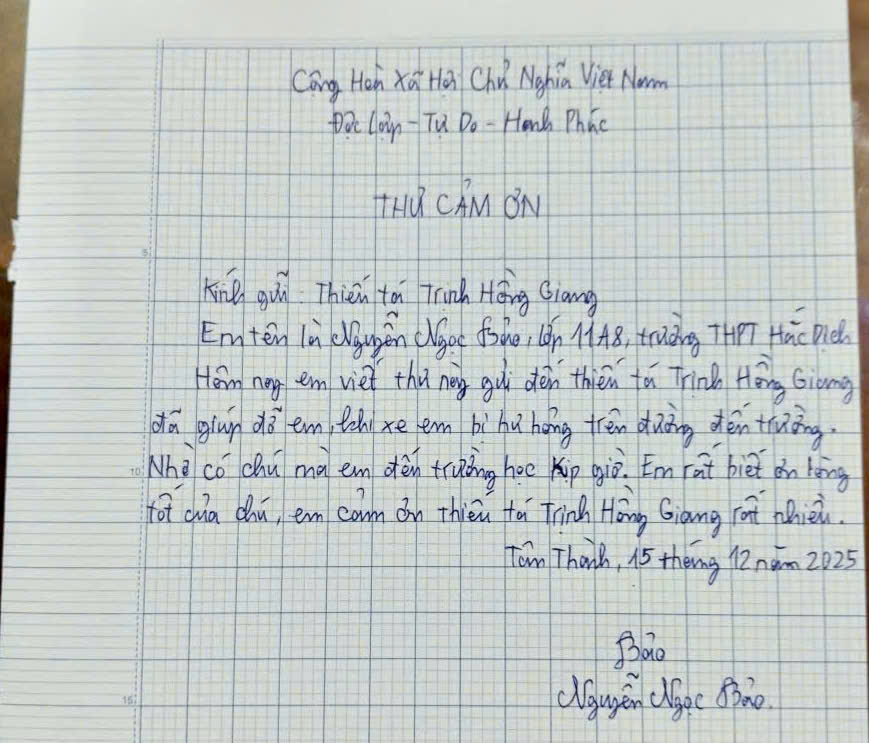 Cộng Hoà Xã Hội Chủ Nghĩa Việt Nam
Độc Lập - Tự Do - Hạnh Phúc
THƯ CẢM ƠN
5
Kính gửi: Thiếu tá Trịnh Hồng Giang
Em tên là Nguyễn Ngọc Bảo, lớp 11A8, trường THPT Hắc Dịch
Hôm nay em viết thư này gửi đến thiếu tá Trịnh Hồng Giang
đã giúp đỡ em, khi xe em bị hư hỏng trên đường đến trường.
10 Nhờ có chú mà em đến trường học kịp giờ. Em rất biết ơn lòng
tốt của chú, em cảm ơn thiếu tá Trịnh Hồng Giang rất nhiều.
Tân Thành, 15 tháng 12 năm 2025
Bảo
15 Nguyễn Ngọc Bảo.